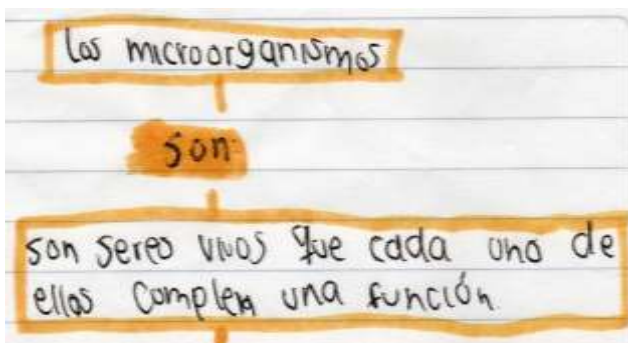 los microorganismos
son
son seres vivos que cada uno de
ellos complen una función